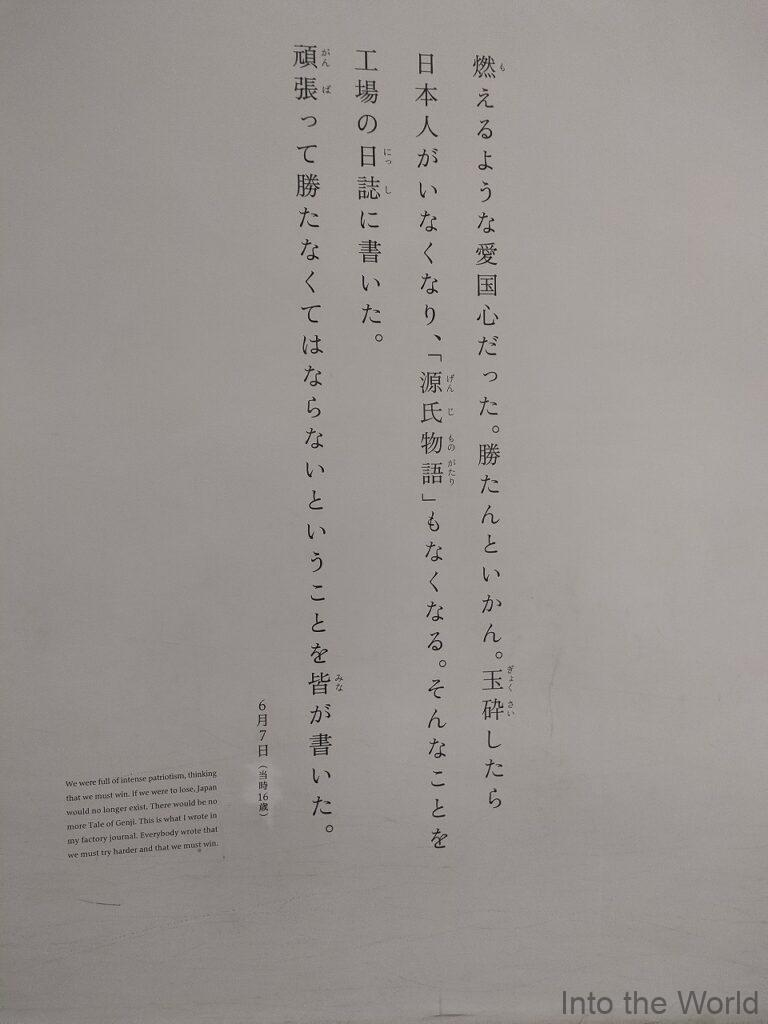 燃えるような愛国心だった。勝たんといかん。玉砕したら
日本人がいなくなり、「源氏物語」もなくなる。そんなことを
工場の日誌に書いた。
頑張って勝たなくてはならないということを皆が書いた。
6月7日（当時16歳）
We were full of intense patriotism, thinking
that we must win. If we were to lose, Japan
would no longer exist. There would be no
more Tale of Genji. This is what I wrote in
my factory journal. Everybody wrote that
we must try harder and that we must win.
Into the World